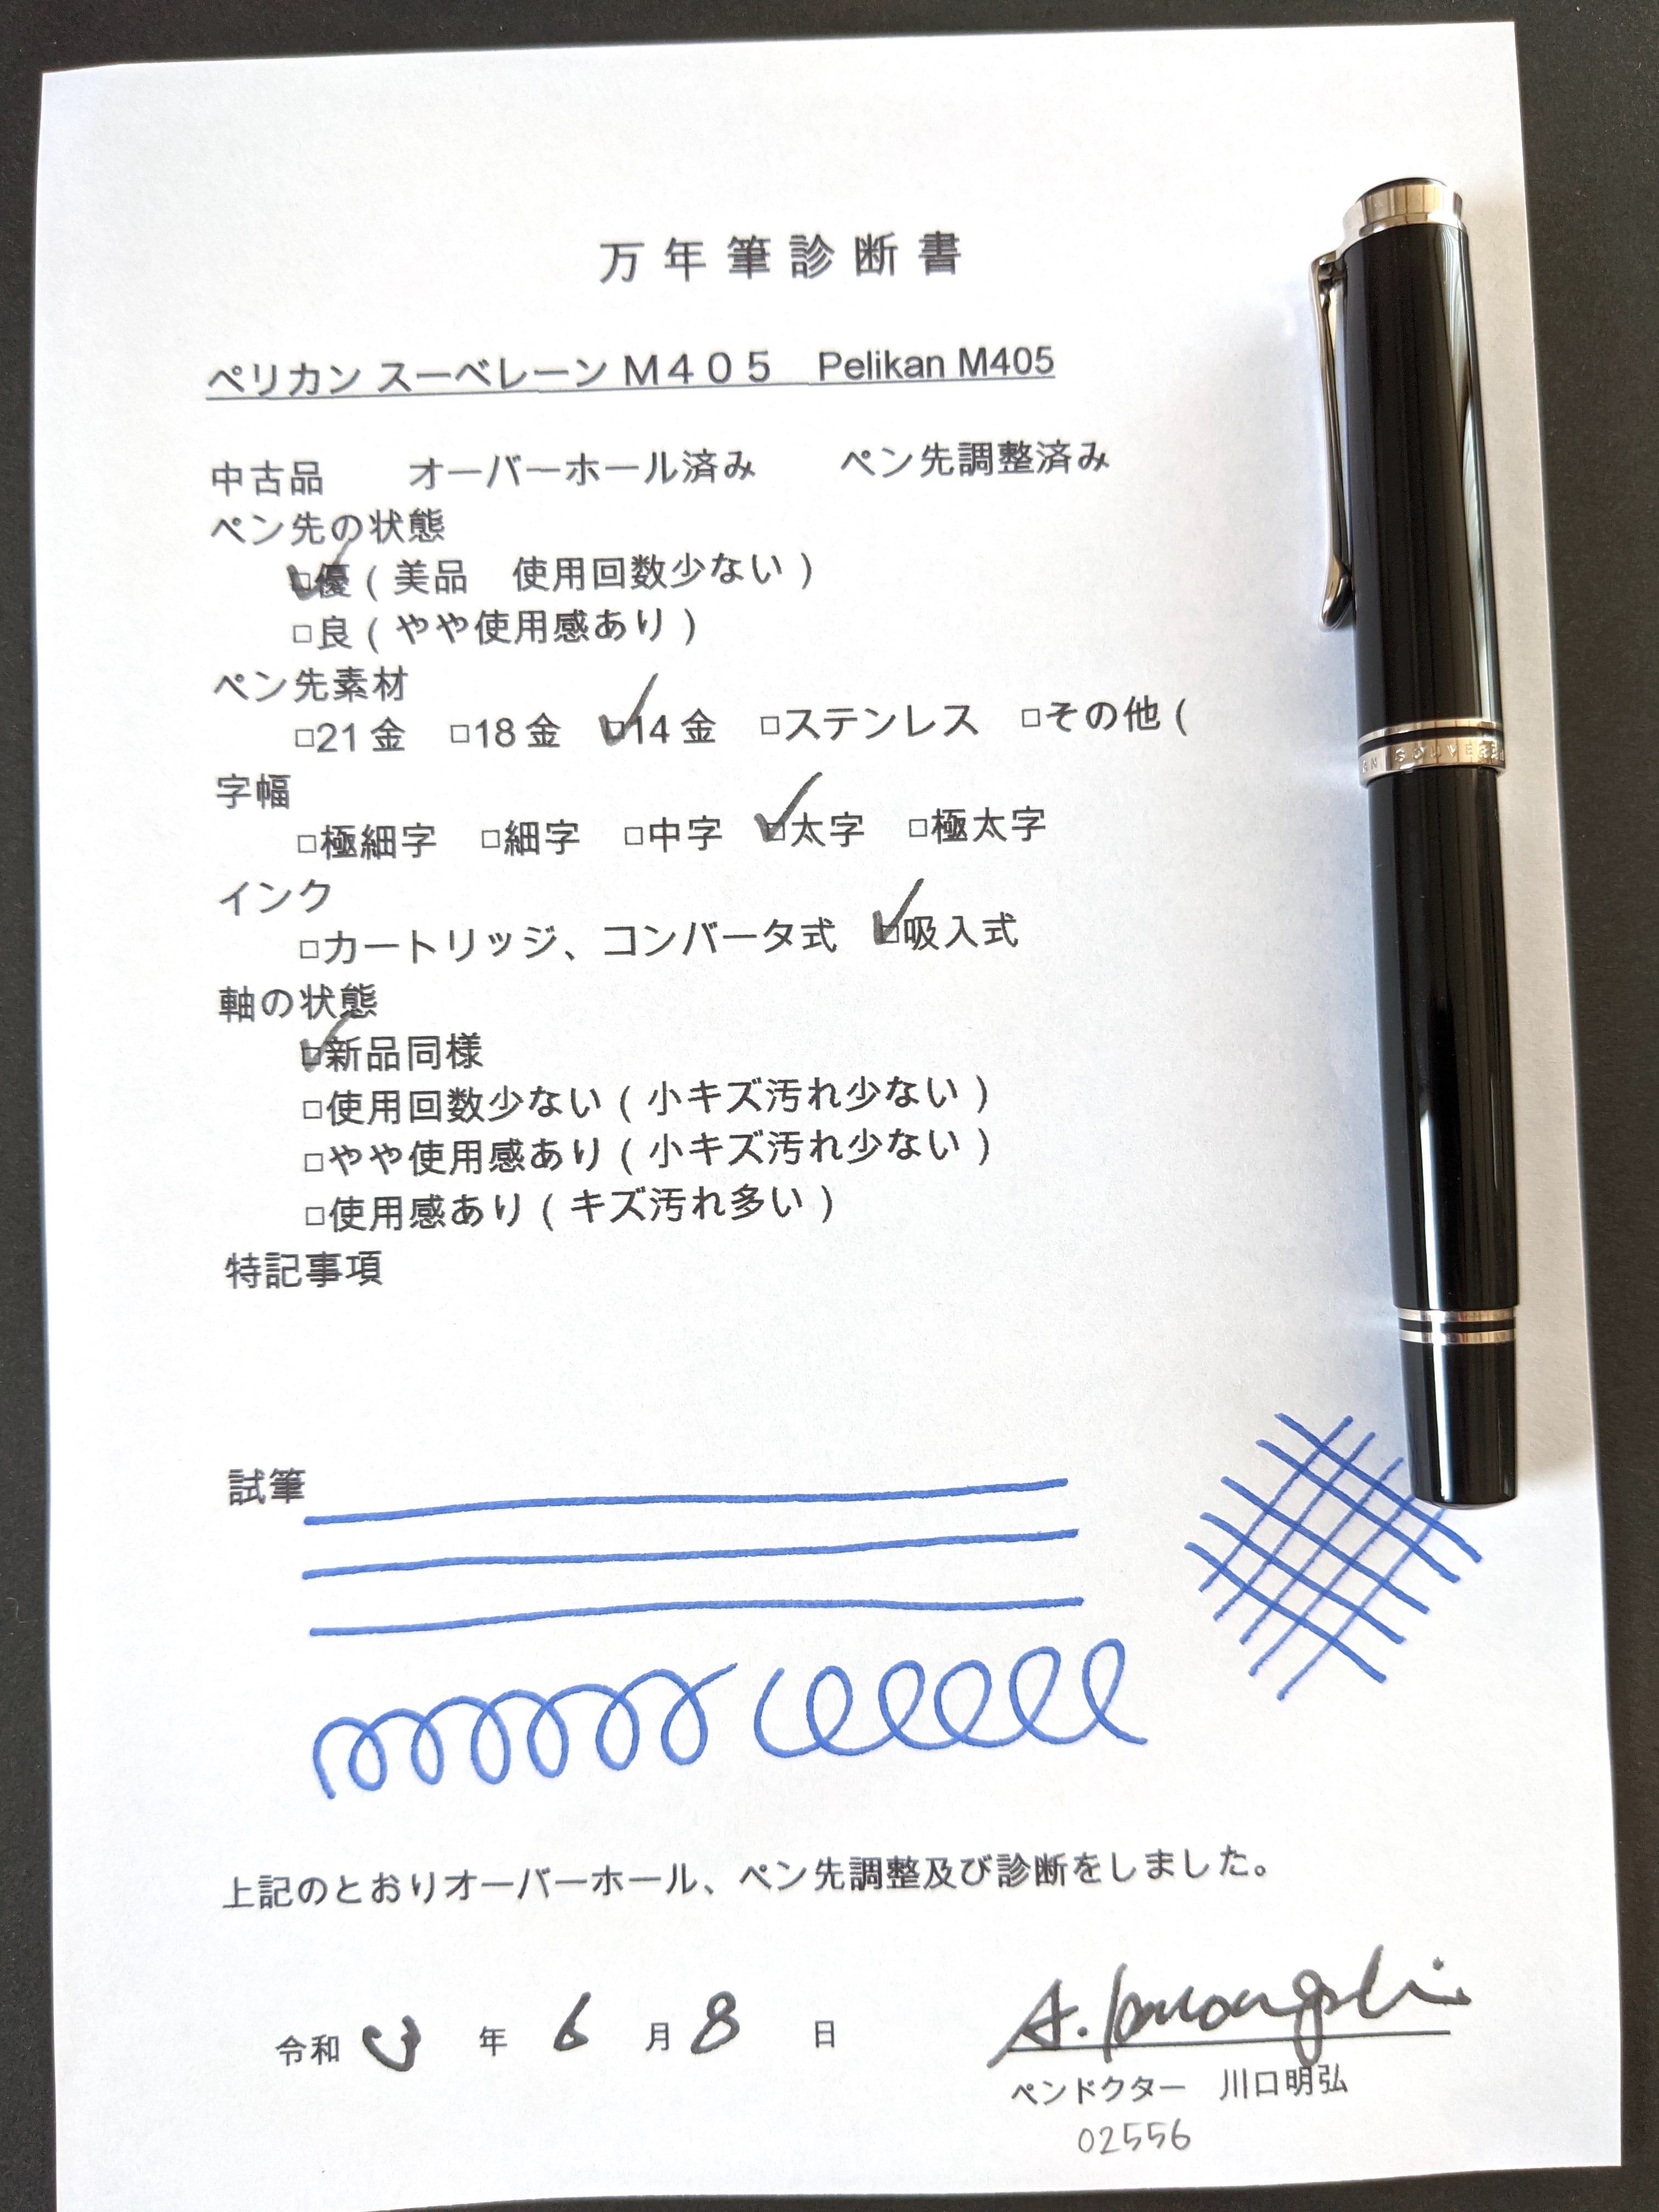 万年筆診断書
ペリカン スーベレーン M405　Pelikan M405
中古品　オーバーホール済み　ペン先調整済み
ペン先の状態
□優（美品　使用回数少ない）
□良（やや使用感あり）
ペン先素材
□21金　□18金　□14金　□ステンレス　□その他（
字幅
□極細字　□細字　□中字　□太字　□極太字
インク
□カートリッジ、コンバータ式　□吸入式
軸の状態
□新品同様
□使用回数少ない（小キズ汚れ少ない）
□やや使用感あり（小キズ汚れ少ない）
□使用感あり（キズ汚れ多い）
特記事項
試筆
上記のとおりオーバーホール、ペン先調整及び診断をしました。
令和 3 年 6 月 8 日
A. Kawaguchi
ペンドクター　川口明弘
02556